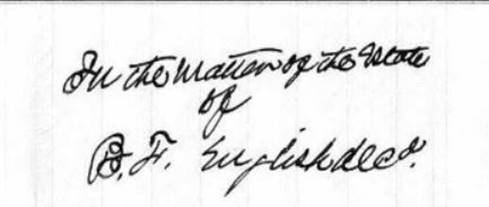 In the matter of the Estate
of
B. F. English decd.